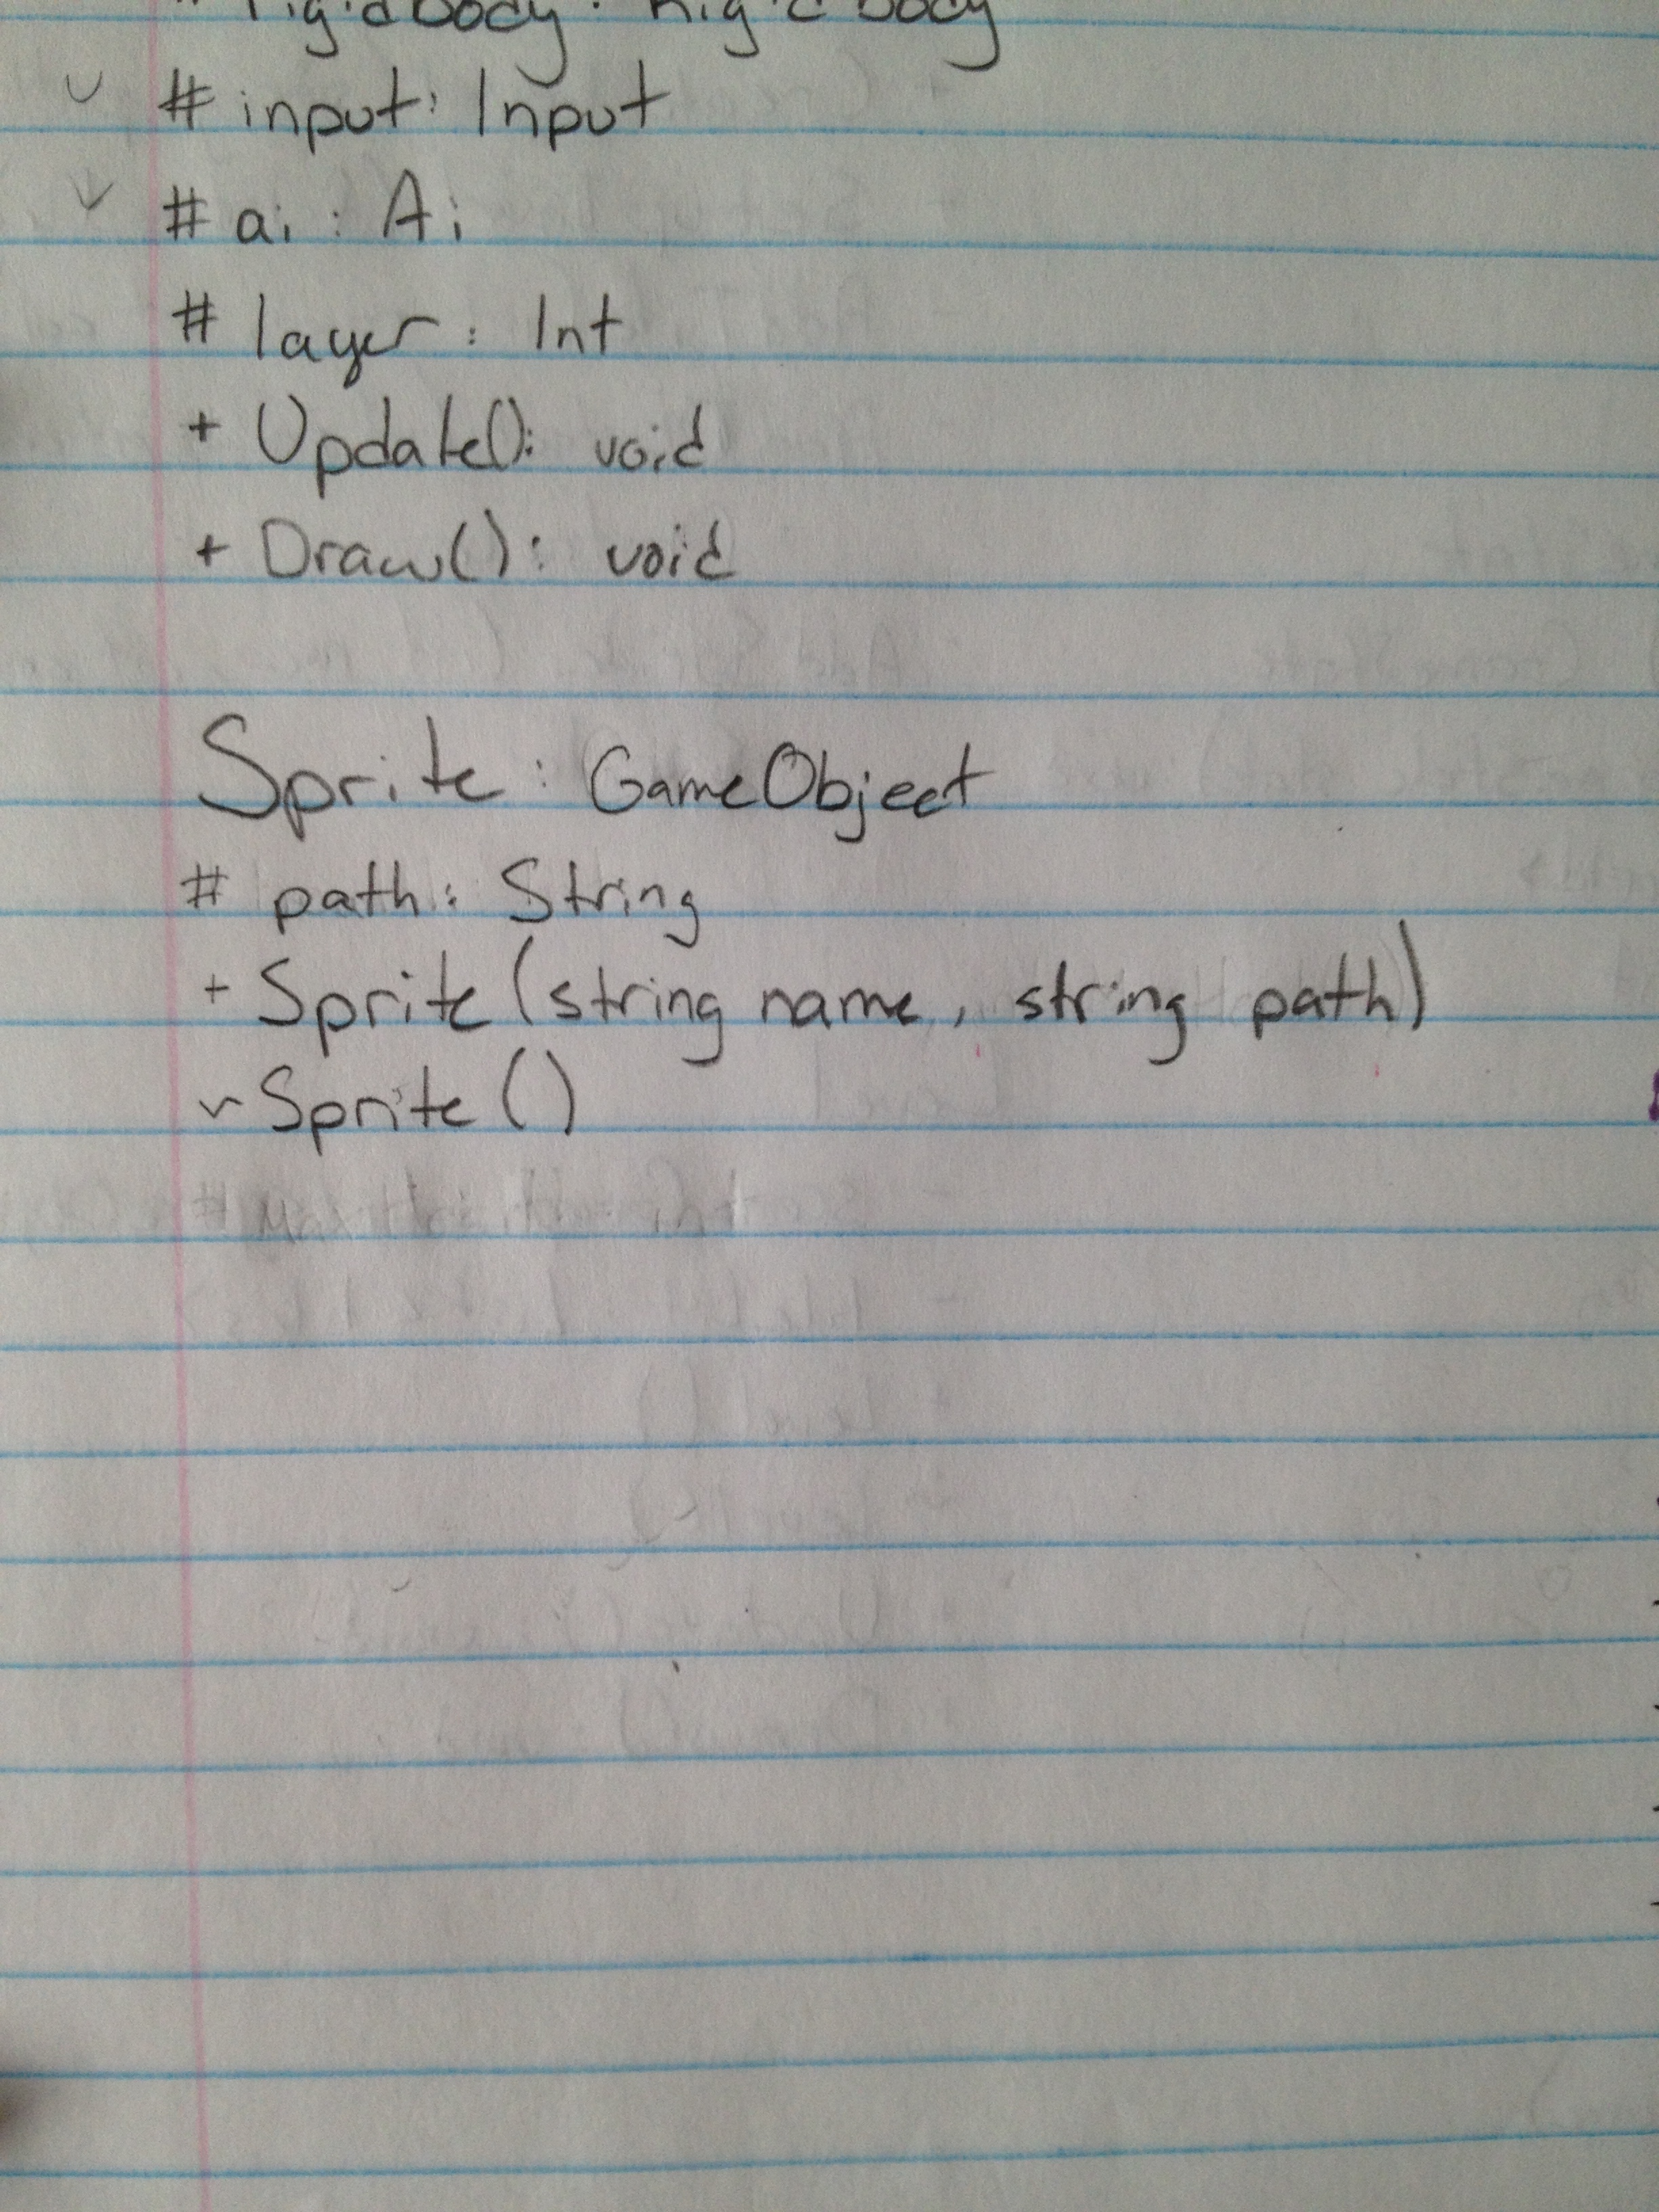 # rigidbody: Rigidbody
# input: Input
# ai: Ai
# layer: Int
+ Update(): void
+ Draw(): void
Sprite: GameObject
# path: String
+ Sprite(string name, string path)
~Sprite()